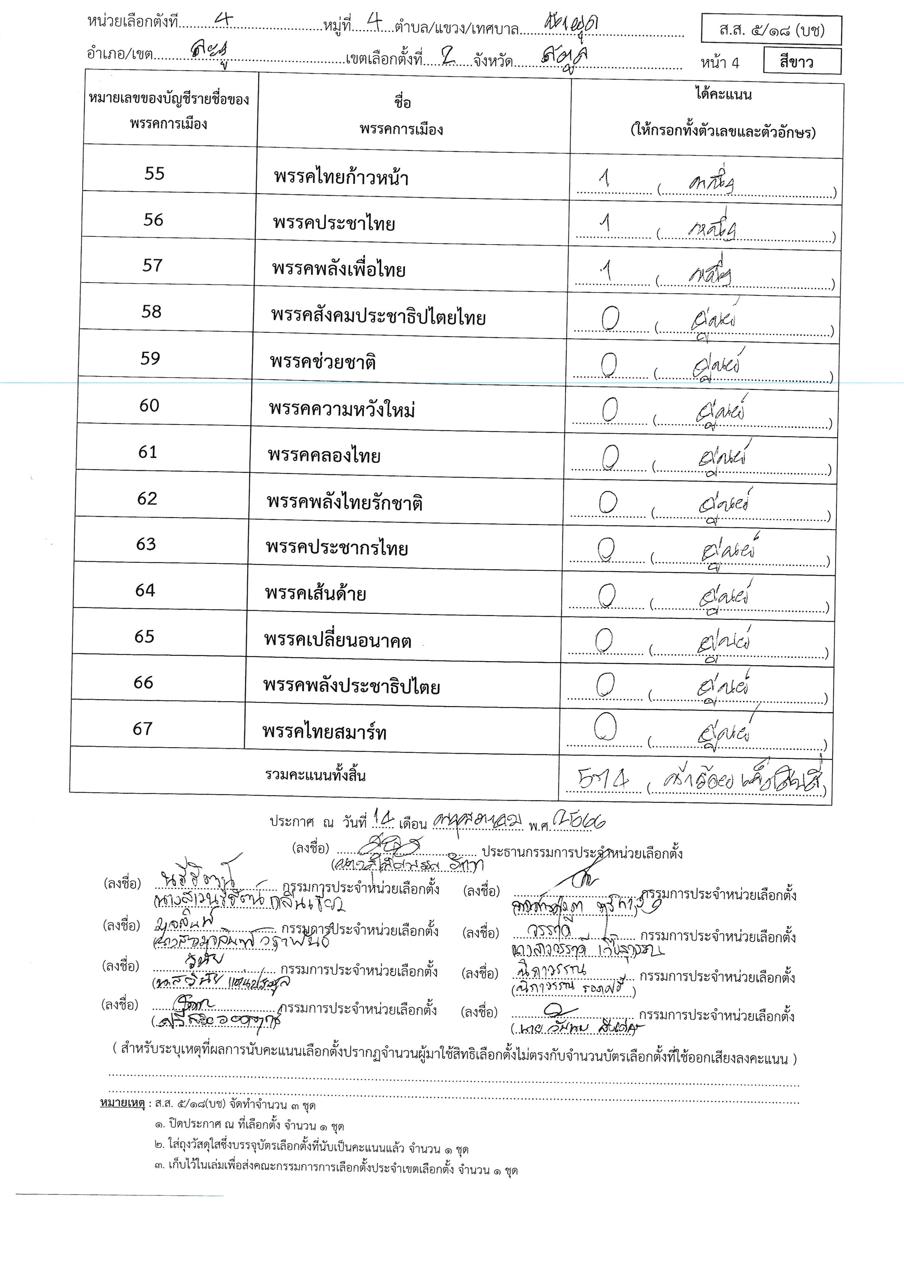 หน่วยเลือกตั้งที่ 4 หมู่ที่ 4 ตำบล/แขวง/เทศบาล กำแพง ส.ส. ๕/๑๘ (บช)
อำเภอ/เขต ละงู เขตเลือกตั้งที่ 2 จังหวัด สตูล หน้า 4 สีขาว
หมายเลขของบัญชีรายชื่อของพรรคการเมือง ชื่อพรรคการเมือง ได้คะแนน (ให้กรอกทั้งตัวเลขและตัวอักษร)
55 พรรคไทยก้าวหน้า 1 (หนึ่ง)
56 พรรคประชาไทย 1 (หนึ่ง)
57 พรรคพลังเพื่อไทย 1 (หนึ่ง)
58 พรรคสังคมประชาธิปไตยไทย 0 (ศูนย์)
59 พรรคช่วยชาติ 0 (ศูนย์)
60 พรรคความหวังใหม่ 0 (ศูนย์)
61 พรรคคลองไทย 0 (ศูนย์)
62 พรรคพลังไทยรักชาติ 0 (ศูนย์)
63 พรรคประชากรไทย 0 (ศูนย์)
64 พรรคเส้นด้าย 0 (ศูนย์)
65 พรรคเปลี่ยนอนาคต 0 (ศูนย์)
66 พรรคพลังประชาธิปไตย 0 (ศูนย์)
67 พรรคไทยสมาร์ท 0 (ศูนย์)
รวมคะแนนทั้งสิ้น 574 (ห้าร้อยเจ็ดสิบสี่)
ประกาศ ณ วันที่ 14 เดือน พฤษภาคม พ.ศ. 2566
(ลงชื่อ) ประธานกรรมการประจำหน่วยเลือกตั้ง
(ลงชื่อ) กรรมการประจำหน่วยเลือกตั้ง (ลงชื่อ) กรรมการประจำหน่วยเลือกตั้ง
(ลงชื่อ) กรรมการประจำหน่วยเลือกตั้ง (ลงชื่อ) วรรดี กรรมการประจำหน่วยเลือกตั้ง
(ลงชื่อ) วินัย กรรมการประจำหน่วยเลือกตั้ง (ลงชื่อ) นิภาวรรณ กรรมการประจำหน่วยเลือกตั้ง
(ลงชื่อ) กรรมการประจำหน่วยเลือกตั้ง (ลงชื่อ) กรรมการประจำหน่วยเลือกตั้ง
( สำหรับระบุเหตุที่ผลการนับคะแนนเลือกตั้งปรากฏจำนวนผู้มาใช้สิทธิเลือกตั้งไม่ตรงกับจำนวนบัตรเลือกตั้งที่ใช้ออกเสียงลงคะแนน )
หมายเหตุ : ส.ส. ๕/๑๘(บช) จัดทำจำนวน ๓ ชุด
๑. ปิดประกาศ ณ ที่เลือกตั้ง จำนวน ๑ ชุด
๒. ใส่ถุงวัสดุใสซึ่งบรรจุบัตรเลือกตั้งที่นับเป็นคะแนนแล้ว จำนวน ๑ ชุด
๓. เก็บไว้ในเล่มเพื่อส่งคณะกรรมการการเลือกตั้งประจำเขตเลือกตั้ง จำนวน ๑ ชุด